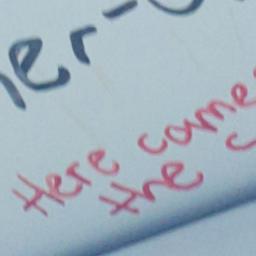 er-
Here came
the